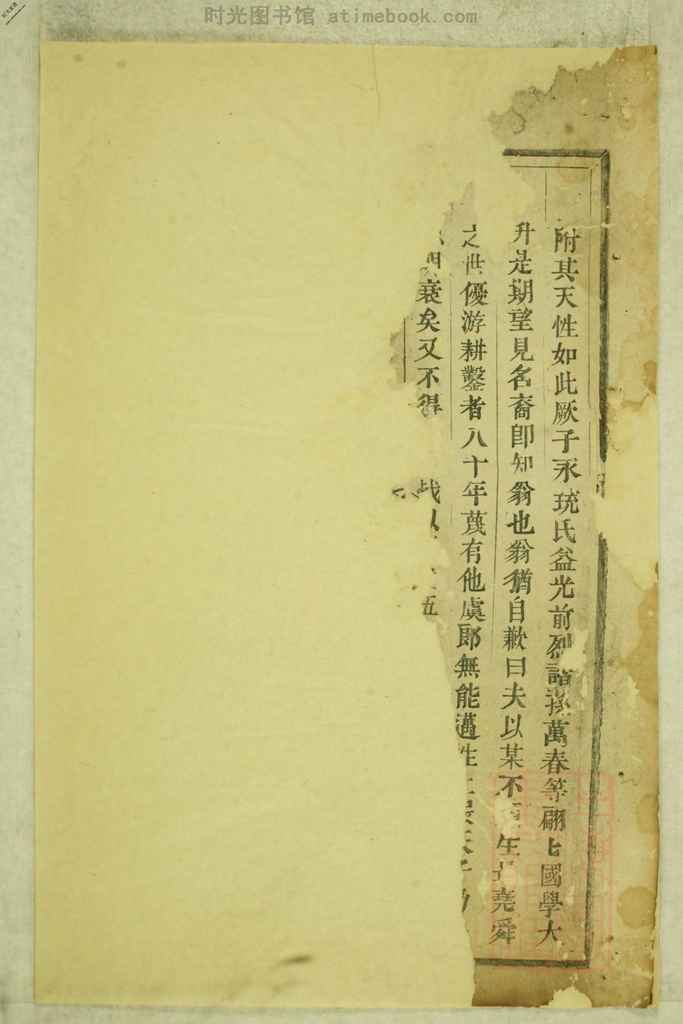 时光图书馆 atimebook.com
附其天性如此厥子永珫氏益光前烈諸孫萬春等翩上國學大
升是期望見名裔卽知翁也翁猶自歉曰夫以某不 生 堯舜
之世優游耕鑿者八十年蔑有他虞郎無能邁性
衰矣又不得 战以 五